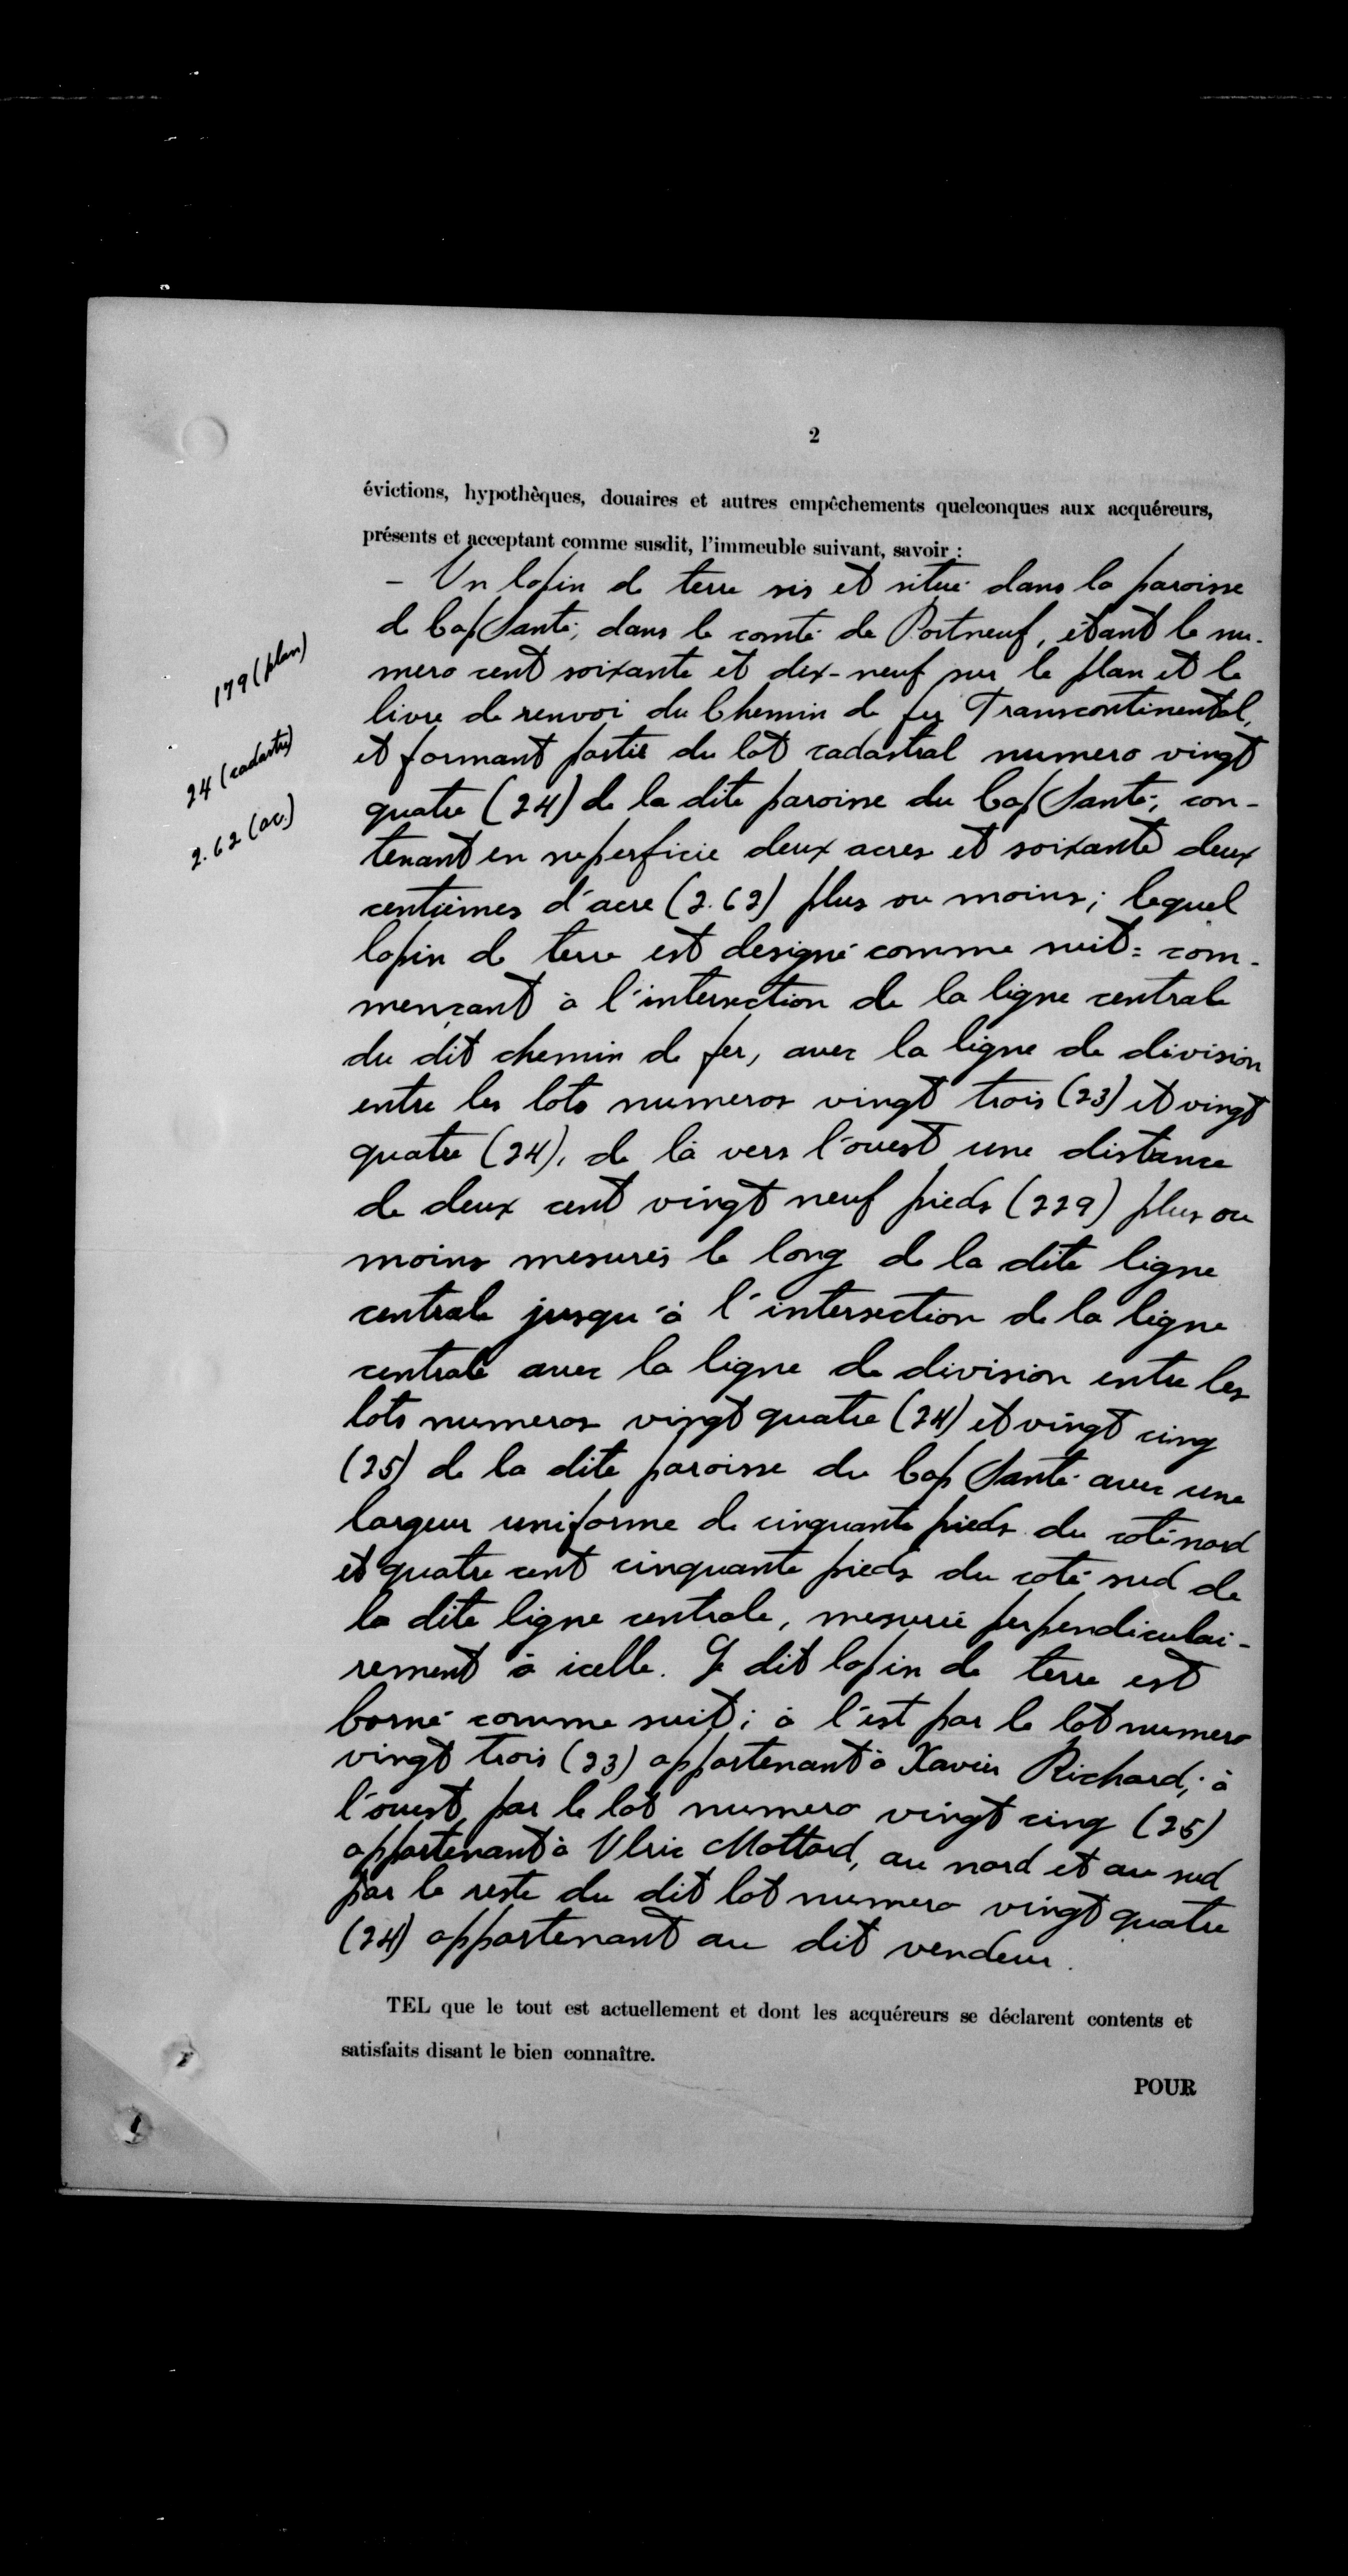 2
évictions, hypothèques, douaires et autres empêchements quelconques aux acquéreurs,
présents et acceptant comme susdit, l'immeuble suivant, savoir :
– Un lopin de terre sis et situé dans la paroisse
de Cap Santé, dans le comté de Portneuf, étant le nu-
mero cent soixante et dix-neuf sur le plan et le
179 (plan)
livre de renvoi du Chemin de fer Transcontinental,
et formant partie du lot cadastral numero vingt
24 (cadastre)
quatre (24) de la dite paroisse du Cap Santé, con-
2.62 (ac.)
tenant en superficie deux acres et soixante deux
centièmes d'acre (2.62) plus ou moins; lequel
lopin de terre est designé comme suit: com-
mençant à l'intersection de la ligne centrale
du dit chemin de fer, avec la ligne de division
entre les lots numeros vingt trois (23) et vingt
quatre (24), de là vers l'ouest une distance
de deux cent vingt neuf pieds (229) plus ou
moins mesurés le long de la dite ligne
centrale jusqu'à l'intersection de la ligne
centrale avec la ligne de division entre les
lots numeros vingt quatre (24) et vingt cinq
(25) de la dite paroisse du Cap Santé avec une
largeur uniforme de cinquante pieds du coté nord
et quatre cent cinquante pieds du coté sud de
la dite ligne centrale, mesurée perpendiculai-
rement à icelle. Le dit lopin de terre est
borné comme suit; à l'est par le lot numero
vingt trois (23) appartenant à Xavier Richard; à
l'ouest, par le lot numero vingt cinq (25)
appartenant à Ulric Mottard, au nord et au sud
par le reste du dit lot numero vingt quatre
(24) appartenant au dit vendeur.
TEL que le tout est actuellement et dont les acquéreurs se déclarent contents et
satisfaits disant le bien connaître.
POUR